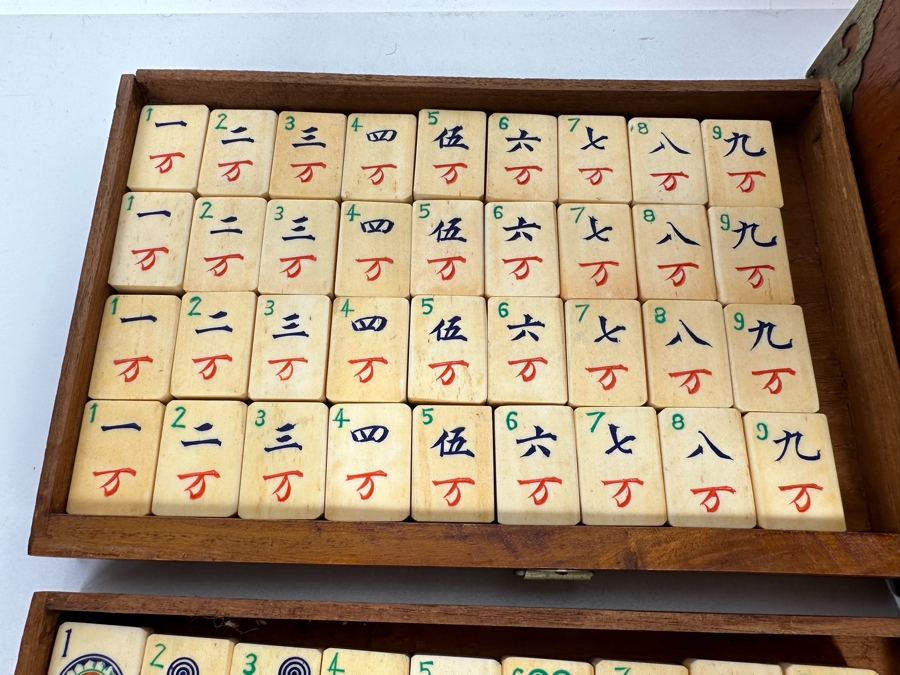 1 一 2 二 3 三 4 四 5 伍 6 六 7 七 8 八 9 九
万 万 万 万 万 万 万 万 万
1 一 2 二 3 三 4 四 5 伍 6 六 7 七 8 八 9 九
万 万 万 万 万 万 万 万 万
1 一 2 二 3 三 4 四 5 伍 6 六 7 七 8 八 9 九
万 万 万 万 万 万 万 万 万
1 一 2 二 3 三 4 四 5 伍 6 六 7 七 8 八 9 九
万 万 万 万 万 万 万 万 万
1 2 3 4 5 6 7